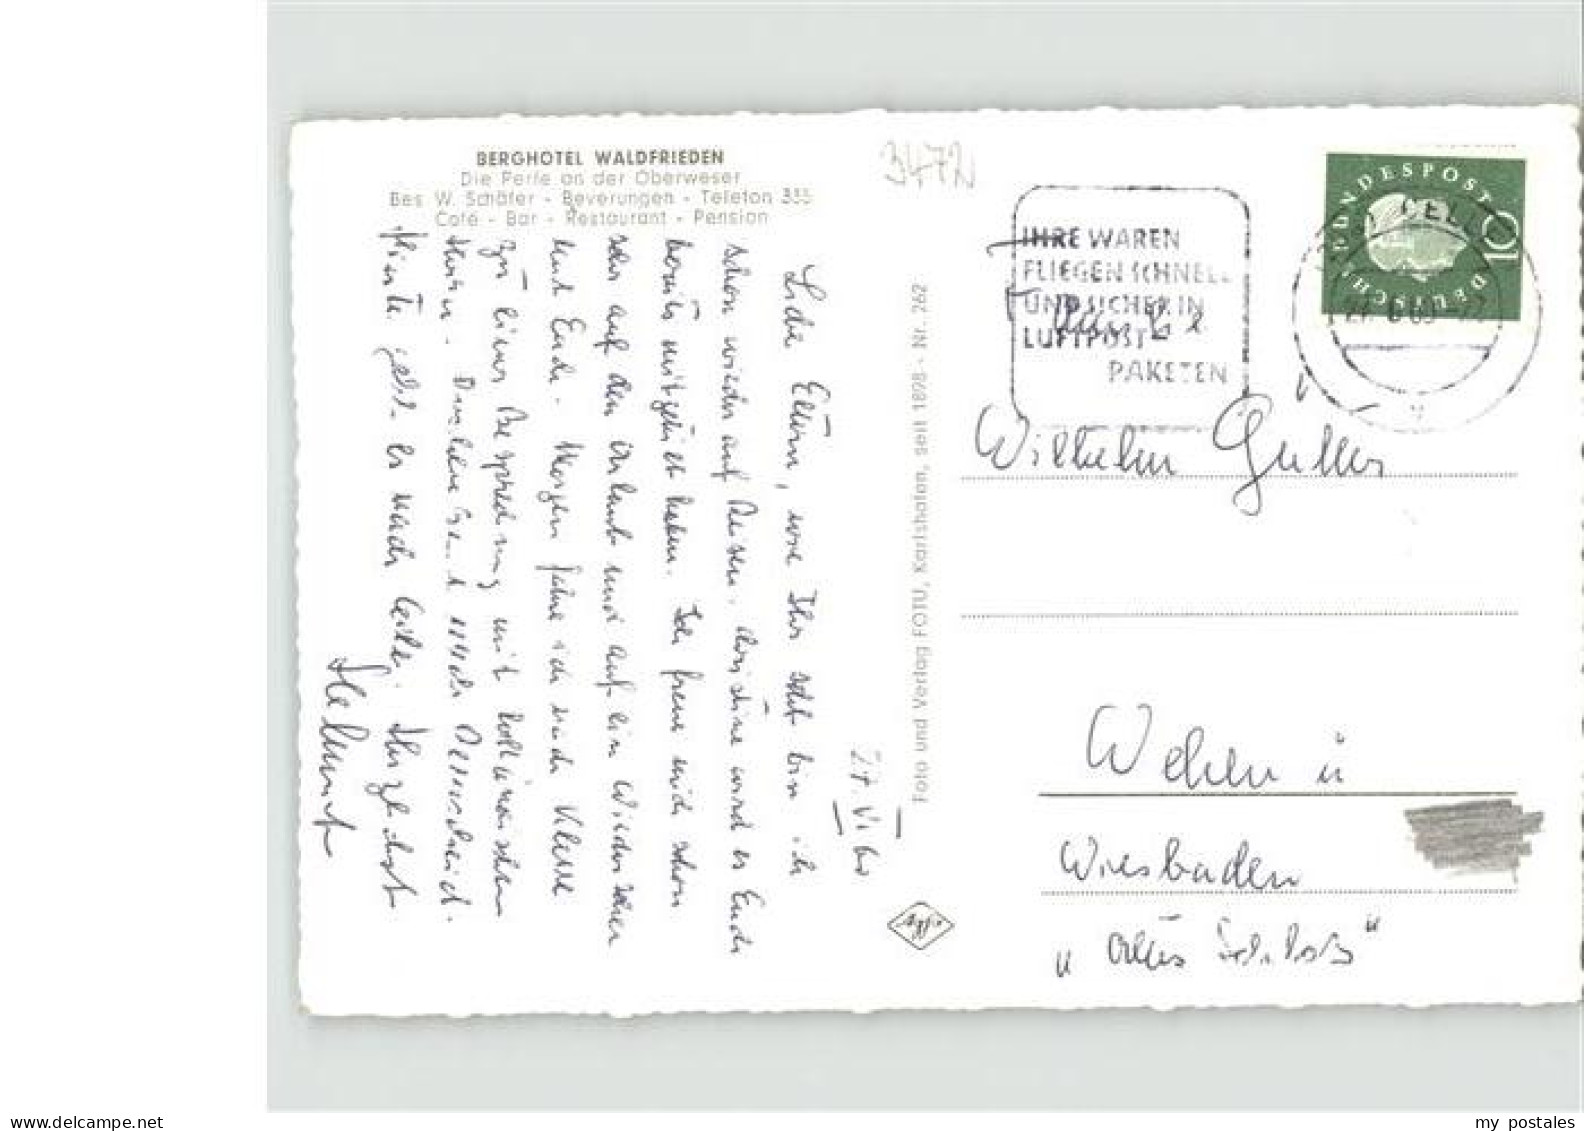 BERGHOTEL WALDFRIEDEN
Die Perle an der Oberweser
Bes. W. Schäfer - Beverungen - Telefon 335
Café - Bar - Restaurant - Pension
3472
Liebe Eltern, wie Ihr seht bin ich
schon wieder auf Reisen. Christine wird es Euch
bereits mitgeteilt haben. Ich freue mich schon
sehr auf den Urlaub und auf ein Wiedersehen
mit Euch. Morgen fahre ich nach
zu einer Besprechung mit
Herren. nach
Heute geht es nach Celle. Herzlichst
Helmut
27. VI 60
Foto und Verlag FOTU, Karlshafen, seit 1898 - Nr. 262
Agfa
IHRE WAREN
FLIEGEN SCHNELL
UND SICHER IN
LUFTPOST-
PAKETEN
DEUTSCHE BUNDESPOST
10
CELLE
27.6.60
Familie
Wilhelm Güller
Wehen ü
Wiesbaden
"Altes Schloß"
my postales